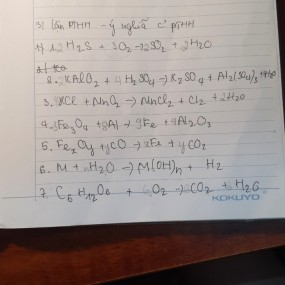 3) lập PTHH - ý nghĩa c² PTHH
1) 2H₂S + 3O₂ → 2SO₂ + 2H₂O
2. 2KAlO₂ + 4H₂SO₄ → K₂SO₄ + Al₂(SO₄)₃ + 4H₂O
3. HCl + MnO₂ → MnCl₂ + Cl₂ + 2H₂O
4. 3Fe₃O₄ + 8Al → 9Fe + 4Al₂O₃
5. FexOy + yCO → xFe + yCO₂
6. M + H₂O → M(OH)n + H₂
7. C₆H₁₂O₆ + 6O₂ → 6CO₂ + H₂O
KOKUYO